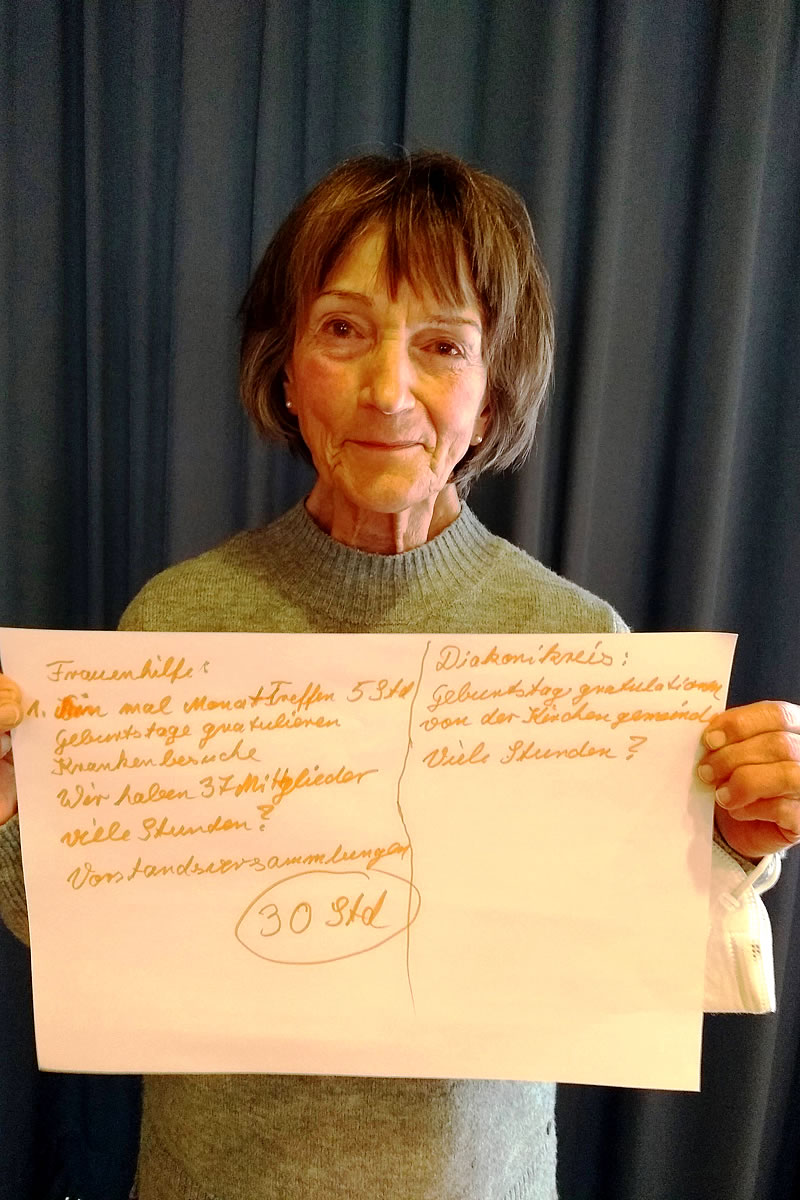 Frauenhilfe:
1. Ein mal Monat Treffen 5 Std
Geburtstage gratulieren
Krankenbesuche
Wir haben 37 Mitglieder
viele Stunden?
Vorstandsversammlungen
30 Std
Diakonikreis:
Geburtstags gratulationen
von der Kirchengemeinde
Viele Stunden?